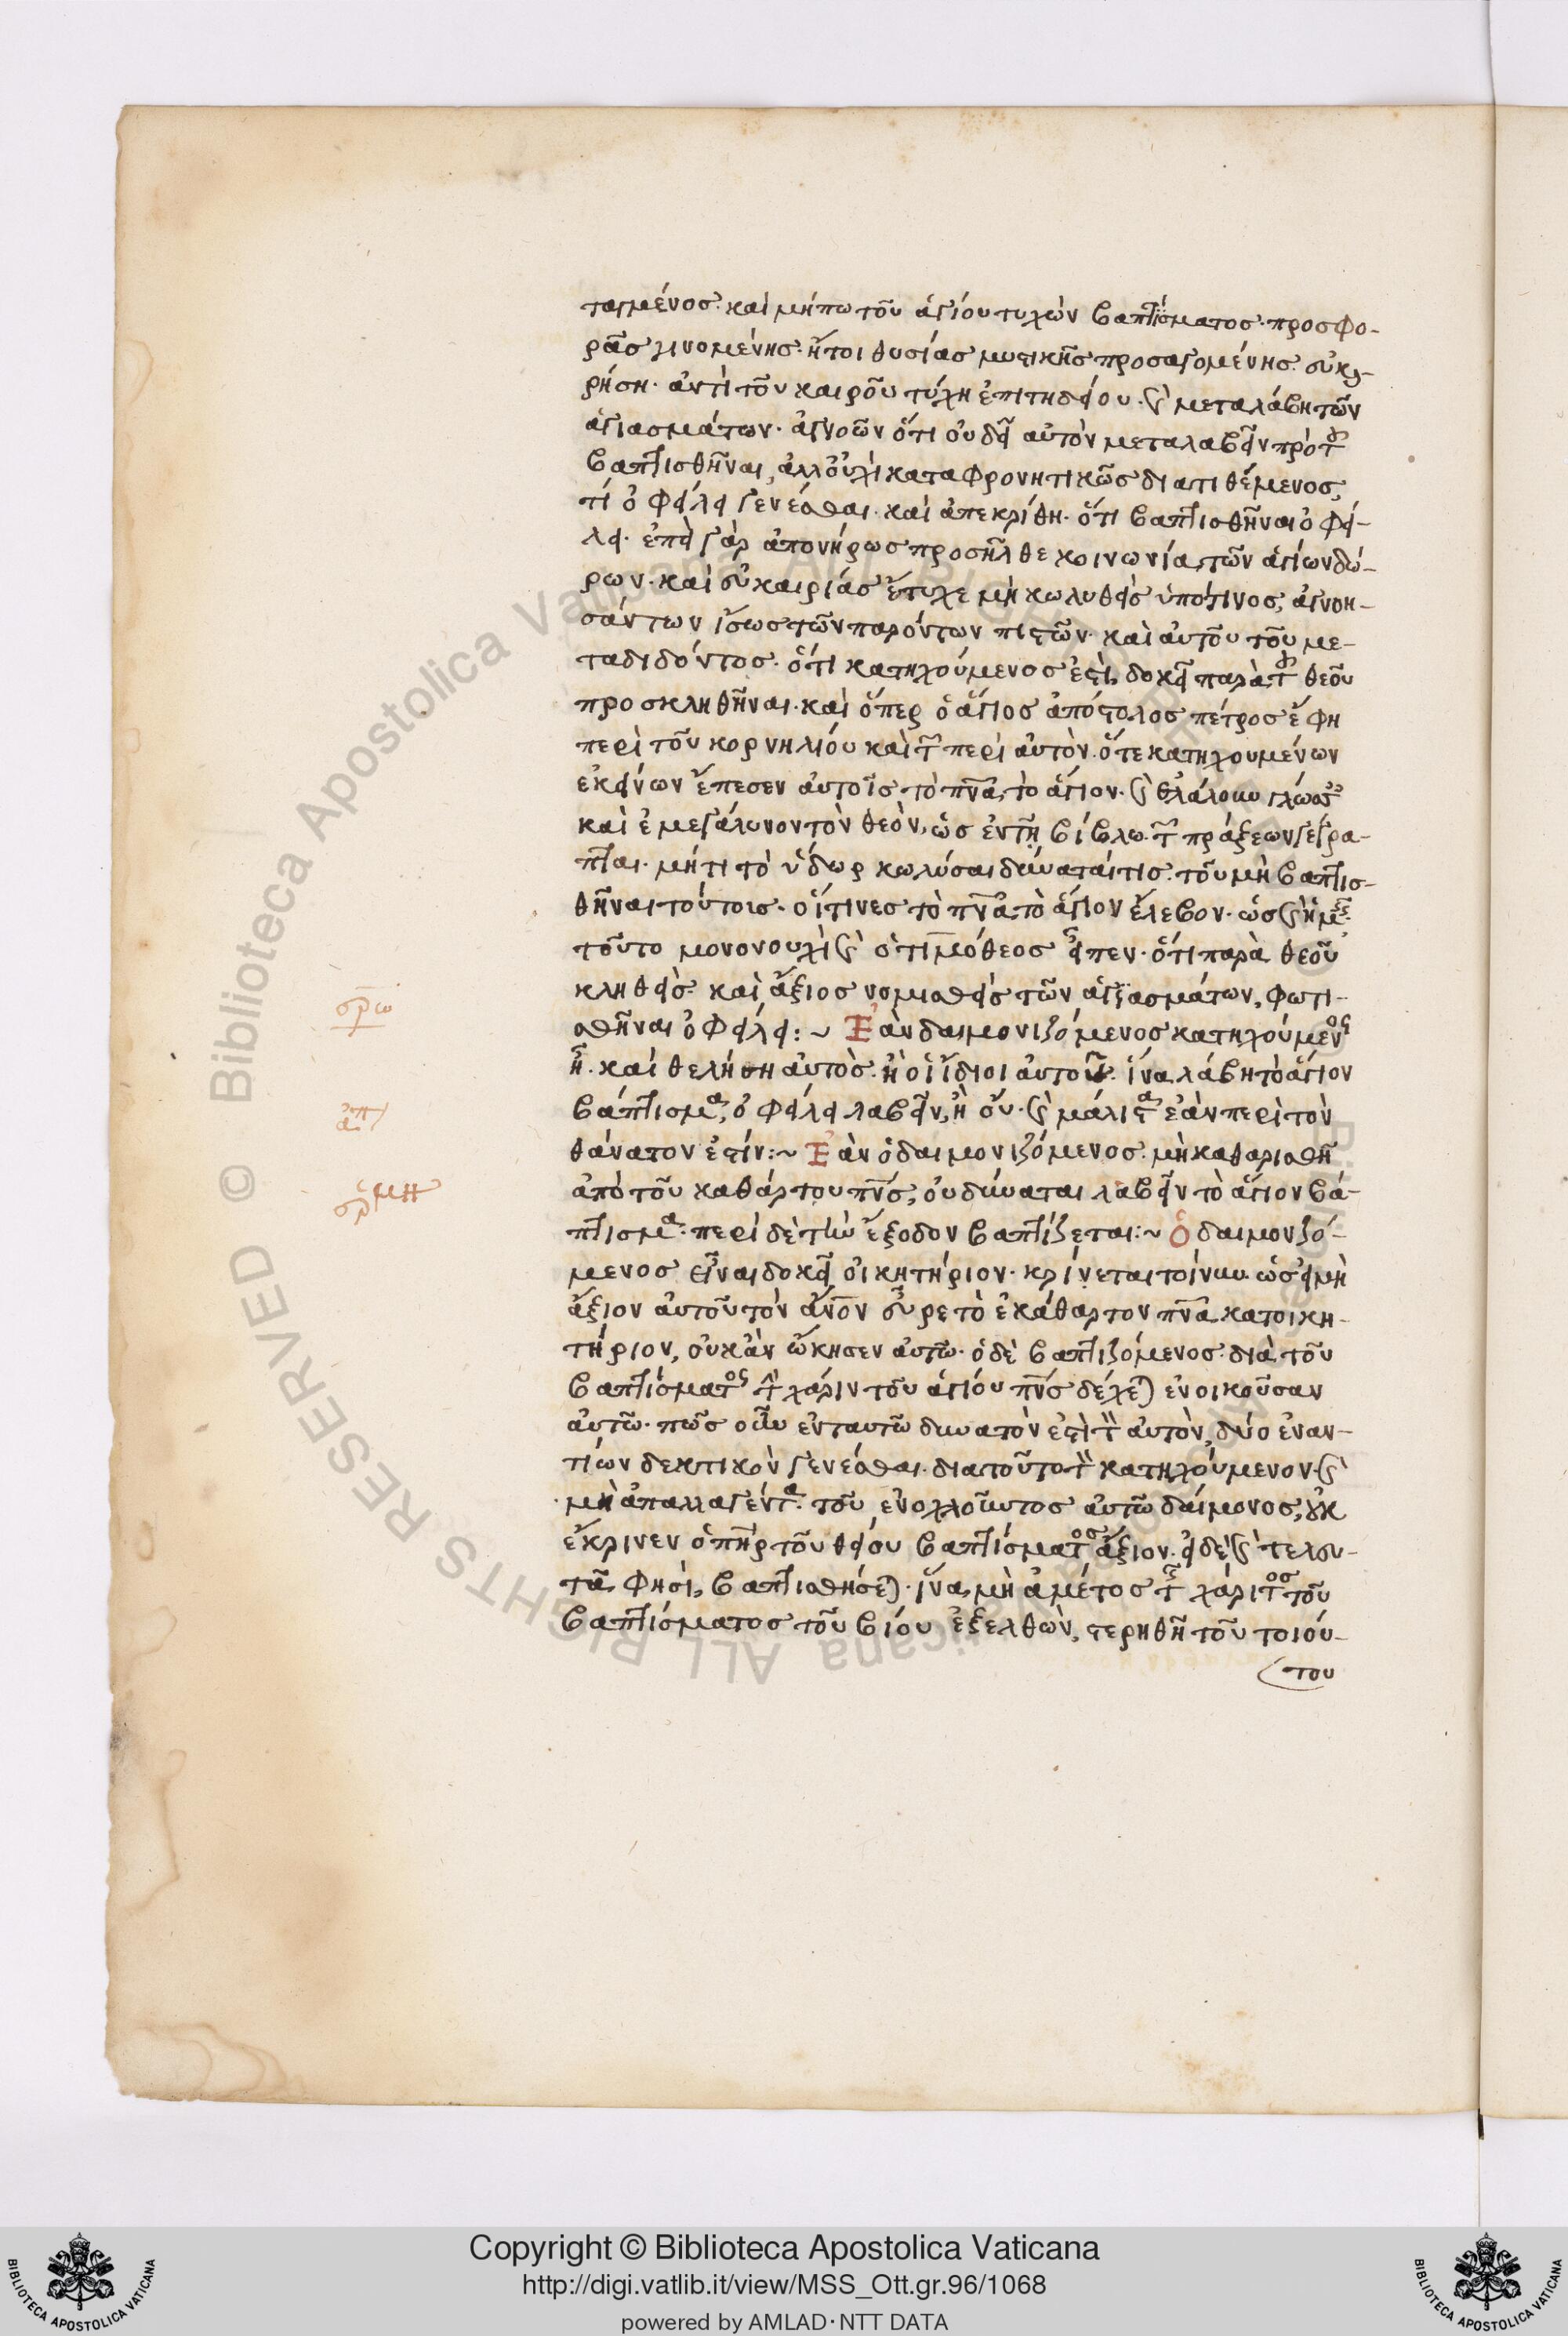 ταγμένος· καὶ μήπω τοῦ ἁγίου τυχὼν βαπτίσματος· προσφο-
ρᾶς γινομένης· ἤτοι θυσίας μυστικῆς προσαγομένης· συγχω-
ρήση· ἀντὶ τοῦ καιροῦ τύχη ἐπιτηδείου· καὶ μεταλάβη τῶν
ἁγιασμάτων· ἀγνοῶν ὅτι οὐ δεῖ αὐτὸν μεταλαβεῖν πρὸ τοῦ
βαπτισθῆναι, ἀλλ' οὐχὶ καταφρονητικῶς διατιθέμενος,
τί ὀφείλει γενέσθαι· καὶ ἀπεκρίθη· ὅτι βαπτισθῆναι ὀφεί-
λει· ἐπεὶ γὰρ ἀπονήρως προσῆλθε κοινωνία τῶν ἁγίων δώ-
ρων· καὶ εὐκαιρίας ἔτυχε μὴ κωλυθεὶς ὑπό τινος, ἀγνοη-
σάντων ἴσως τῶν παρόντων πιστῶν· καὶ αὐτοῦ τοῦ με-
ταδιδόντος· ὅτι κατηχούμενος ἐστὶ, δοκεῖ παρὰ τοῦ θεοῦ
προσκληθῆναι· καὶ ὅπερ ὁ ἅγιος ἀπόστολος πέτρος ἔφη
περὶ τοῦ κορνηλίου καὶ τῶν περὶ αὐτὸν· ὅτε κατηχουμένων
ἐκείνων ἔπεσεν αὐτοῖς τὸ πνᾶ τὸ ἅγιον· καὶ ἐλάλουν γλώσσαις
καὶ ἐμεγάλυνον τὸν θεὸν, ὡς ἐν τῆ βίβλω τῶν πράξεων γέγρα-
πται· μήτι τὸ ὕδωρ κωλύσαι δύναταί τις τοῦ μὴ βαπτισ-
θῆναι τούτοις· οἵτινες τὸ πνᾶ τὸ ἅγιον ἔλεβον· ὡς καὶ ἡμεῖς·
τοῦτο μονονουχὶ καὶ ὁ τιμόθεος εἶπεν· ὅτι παρὰ θεοῦ
κληθεὶς· καὶ ἄξιος νομισθεὶς τῶν ἁγιασμάτων, φωτι-
σθῆναι ὀφείλει:~ Ἐὰν δαιμονιζόμενος κατηχούμενος
ἦ· καὶ θελήση αὐτὸς· ἢ οἱ ἴδιοι αὐτοῦ· ἵνα λάβη τὸ ἅγιον
βάπτισμα, ὀφείλει λαβεῖν, ἢ οὔ· καὶ μάλιστα ἐὰν περὶ τὸν
θάνατον ἐστίν:~ Ἐὰν ὁ δαιμονιζόμενος μὴ καθαρισθῆ
ἀπὸ τοῦ καθάρτου πνς, οὐ δύναται λαβεῖν τὸ ἅγιον βά-
πτισμα· περὶ δὲ τὴν ἔξοδον βαπτίζεται:~ Ὁ δαιμονζό-
μενος εἶναι δοκεῖ οἰκητήριον· κρίνεται τοίνυν ὡς εἰ μὴ
ἄξιον αὐτοῦ τὸν ἄνον εὗρε τὸ ἐκάθαρτον πνᾶ κατοικη-
τήριον, οὐκ ἂν ὤκησεν αὐτῶ· ὁ δὲ βαπτιζόμενος διὰ τοῦ
βαπτίσματος τὴν χάριν τοῦ ἁγίου πνς δέχεται ἐνοικοῦσαν
αὐτῶ· πῶς οὖν ἐνταυτῶ δυνατὸν ἐστὶ τὸν αὐτὸν, δύο ἐναν-
τίων δεκτικὸν γενέσθαι· διατοῦτο τὸν κατηχούμενον καὶ
μὴ ἀπαλλαγέντα τοῦ ἐνοχλοῦντος αὐτῶ δαίμονος, οὐκ
ἔκρινεν ὁ πηρ τοῦ θείου βαπτίσματος ἄξιον· εἰ δὲ καὶ τελευ-
τᾶ, φησὶ, βαπτισθήσεται· ἵνα μὴ ἀμέτοχος τῆς χάριτος τοῦ
βαπτίσματος τοῦ βίου ἐξελθὼν, στερηθῆ τοῦ τοιού-
του
ἀπ
Copyright © Biblioteca Apostolica Vaticana
http://digi.vatlib.it/view/MSS_Ott.gr.96/1068
powered by AMLAD·NTT DATA
BIBLIOTECA APOSTOLICA VATICANA
BIBLIOTECA APOSTOLICA VATICANA
© Biblioteca Apostolica Vaticana ALL RIGHTS RESERVED